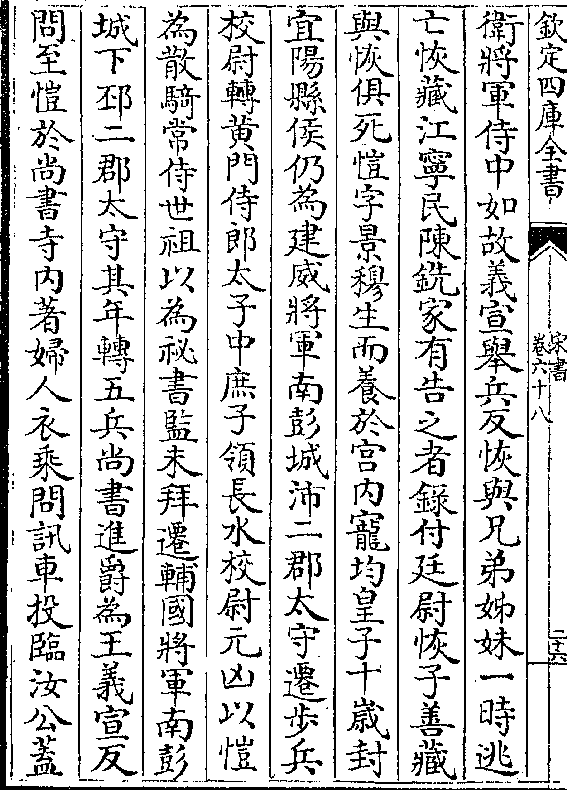 欽定四庫全書
宋書
卷六十八
二十六
衛將軍侍中如故義宣舉兵反恢與兄弟姊妹一時逃
亡恢藏江寧民陳銑家有告之者錄付廷尉恢子善藏
與恢俱死愷字景穆生而養於宫内寵均皇子十歲封
宜陽縣侯仍為建威將軍南彭城沛二郡太守遷步兵
校尉轉黄門侍郎太子中庶子領長水校尉元凶以愷
為散騎常侍世祖以為祕書監未拜遷輔國將軍南彭
城下邳二郡太守其年轉五兵尚書進爵為王義宣反
問至愷於尚書寺内著婦人衣乘問訊車投臨汝公蓋